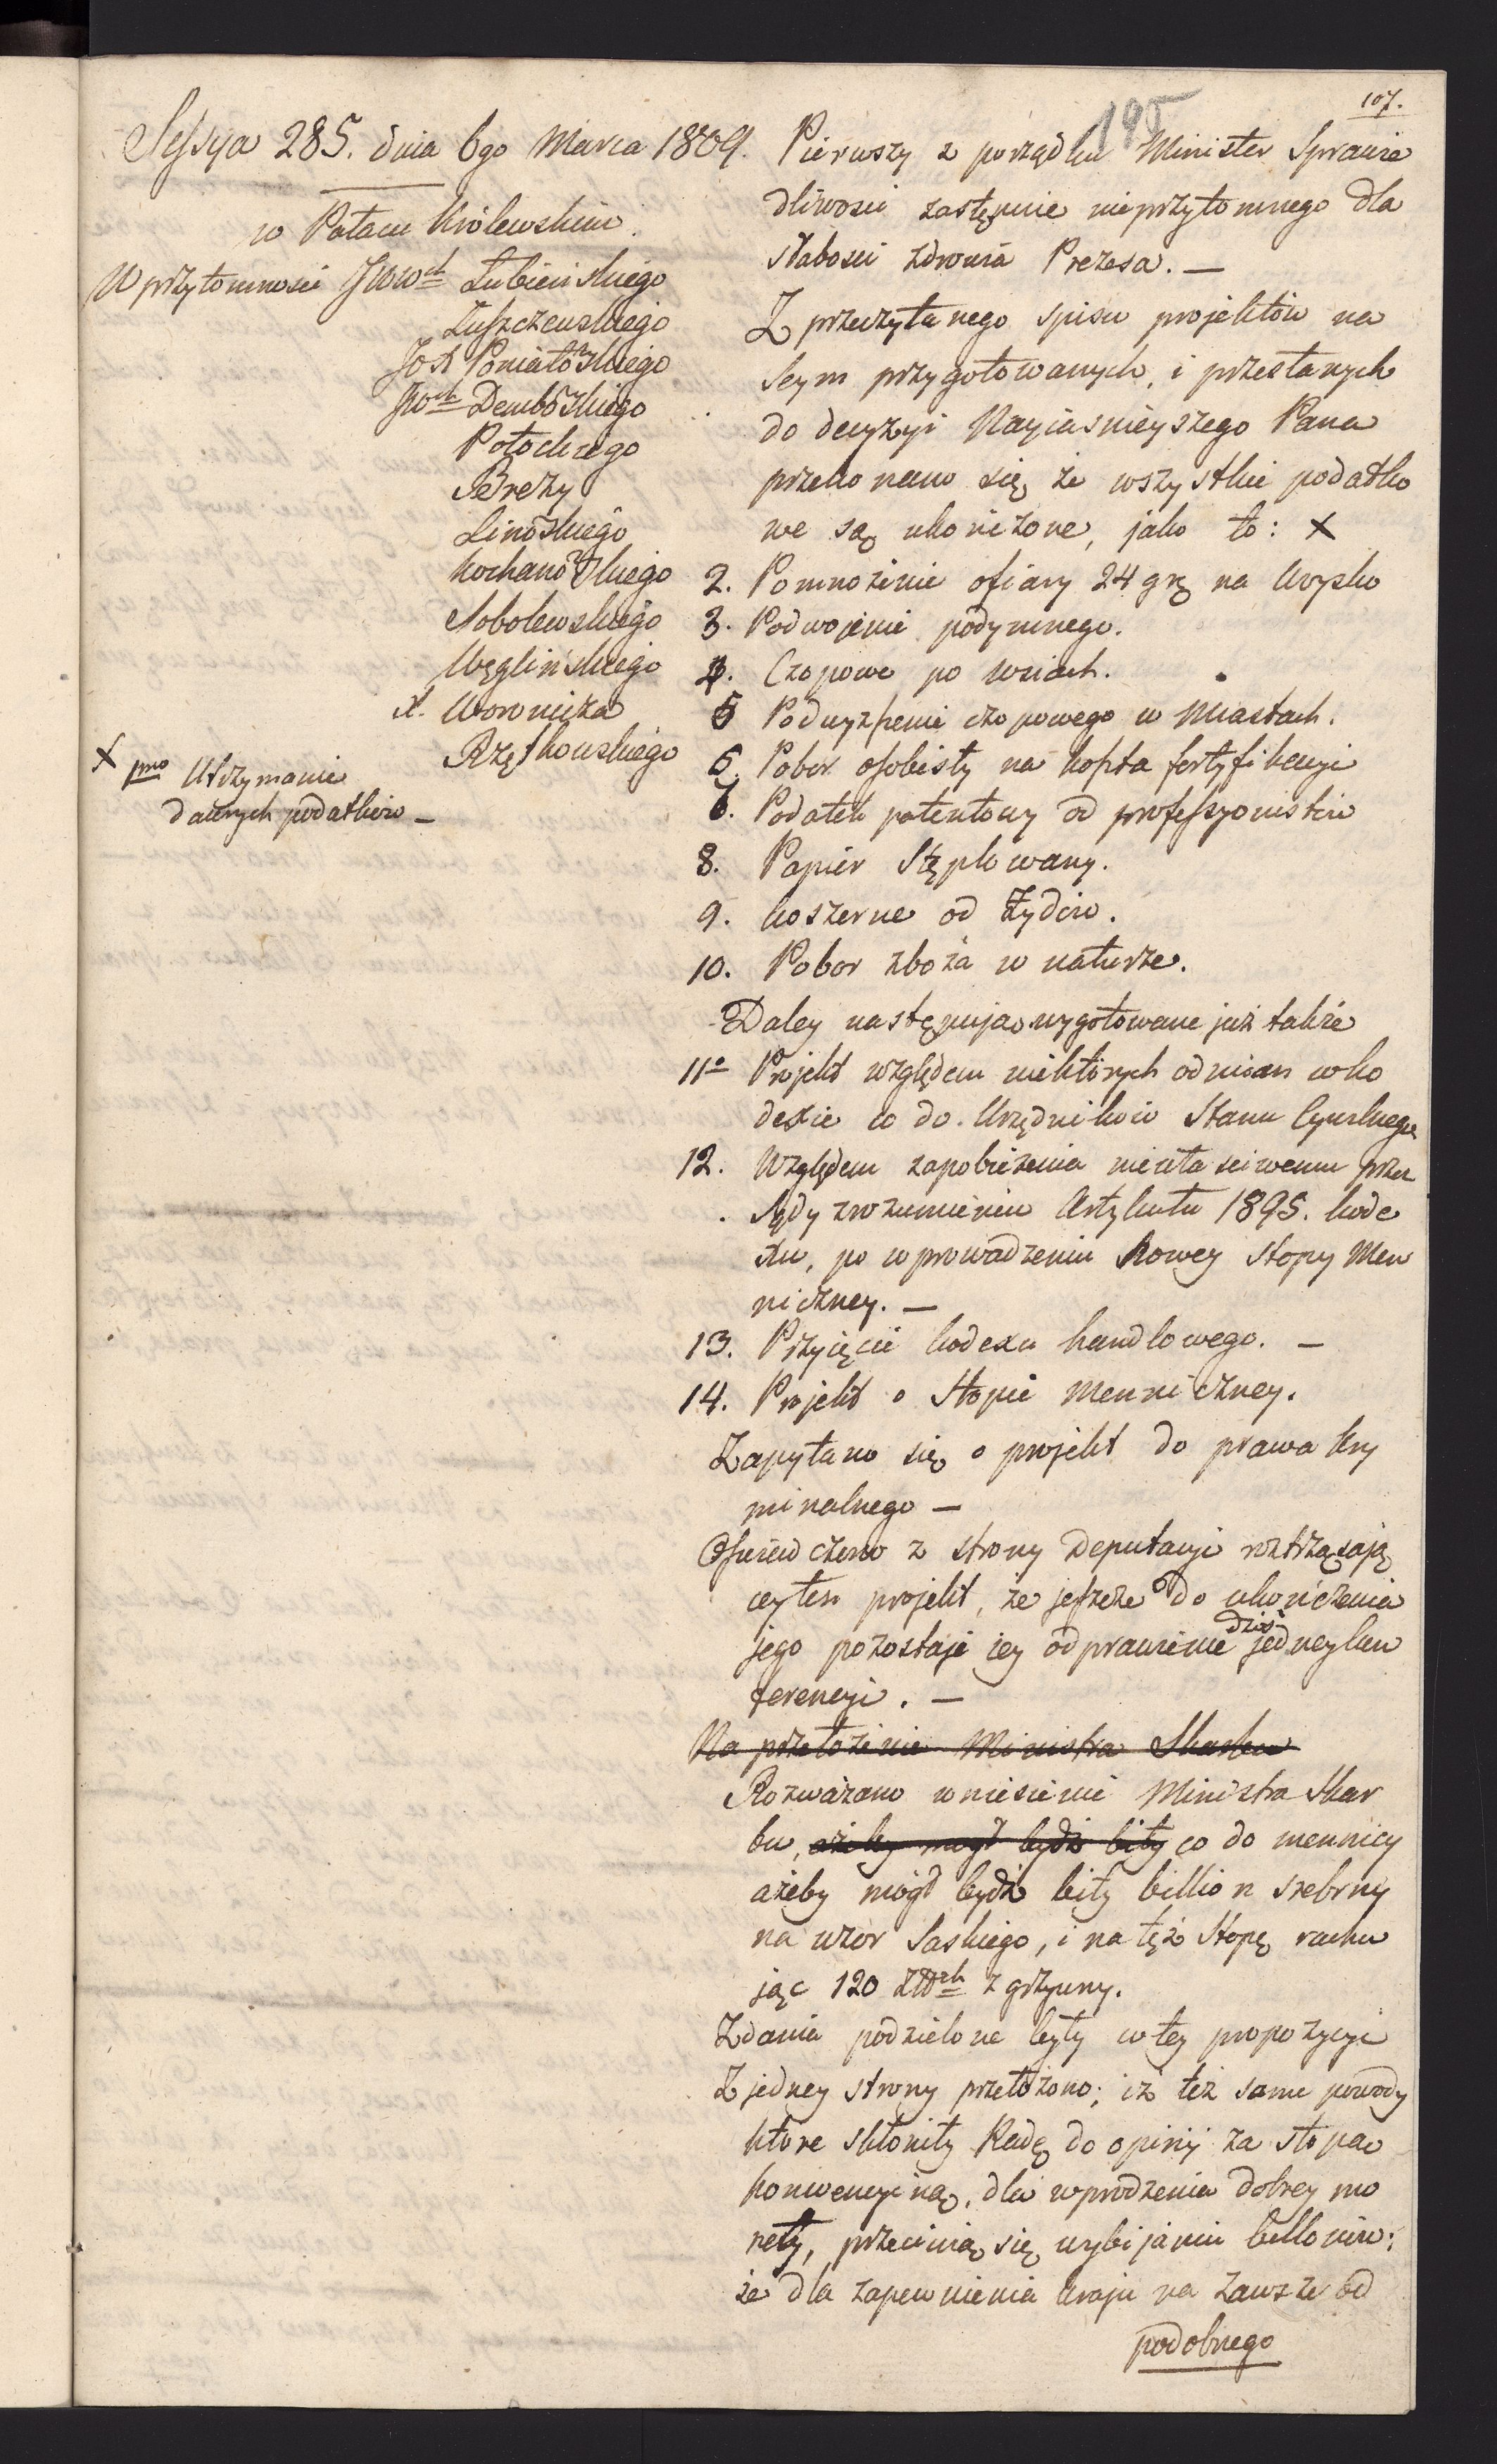 107.
195
Sessya 285. dnia 6go Marca 1809.
w Pałacu Królewskim.
W przytomnosci JWWch Łubieńskiego
Łuszczewskiego
JOX Poniatowskiego
JWch Dembowskiego
Potockiego
Brezy
Linowskiego
Kochanowskiego
Sobolewskiego
Węglińskiego
X. Woronicza
Rzętkowskiego
X pmo Utrzymanie
dawnych podatków —
Pierwszy z porządku Minister Sprawie
dliwosci zastępuie nieprzytomnego dla
słabosci zdrowia Prezesa. —
Z przeczytanego spisu projektów na
Seym przygotowanych, i przesłanych
do decyzyi Nayiasnieyszego Pana
przekonano się że wszystkie podatko
we są ukończone, jako to: X
2. Pomnożenie ofiary 24 grą na Woysko
3. Podwojenie podymnego.
4. Czopowe po wsiach.
5 Podwyższenie czopowego w Miastach.
6. Pobor osobisty na koszta fortyfikacyi
7. Podatek patentowy od professyonistów
8. Papier Stęplowany.
9. Koszerne od Żydów.
10. Pobor zboża w naturze.
Daley następują wygotowane już także
11o Projekt względem niektórych odmian w ko
dexie co do Urzędników Stanu Cywilnego
12. Względem zapobieżenia niewłasciwemu przez
Sądy zrozumieniu Artykułu 1895. kode
xu, po wprowadzeniu Nowey Stopy Men
niczney. —
13. Przyięcie kodexu handlowego. —
14. Projekt o Stopie Menniczney.
Zapytano się o projekt do prawa kry
minalnego —
Oświadczono z strony Deputacyi roztrząsają
cey ten projekt, że jeszcze do ukończenia
jego pozostaje iey odprawienie dziś jedney kon
ferencyi. —
Na przełożenie Ministra Skarbu
Rozważano wniesienie Ministra Skar
bu, ażeby mogł bydź bity co do mennicy
ażeby mógł bydź bity billion srebrny
na wzór Saskiego, i na tęż Stopę rachu
jąc 120 Złłch z grzywny.
Zdania podzielone były w tey propozycyi
Z jedney strony przełożono; iż też same powody
które skłoniły Radę do opinij za stopą
konwencyiną, dla wprodzenia dobrey mo
nety, przeciwią się wybijaniu billonów;
że dla zapewnienia kraju na zawsze od
podobnego